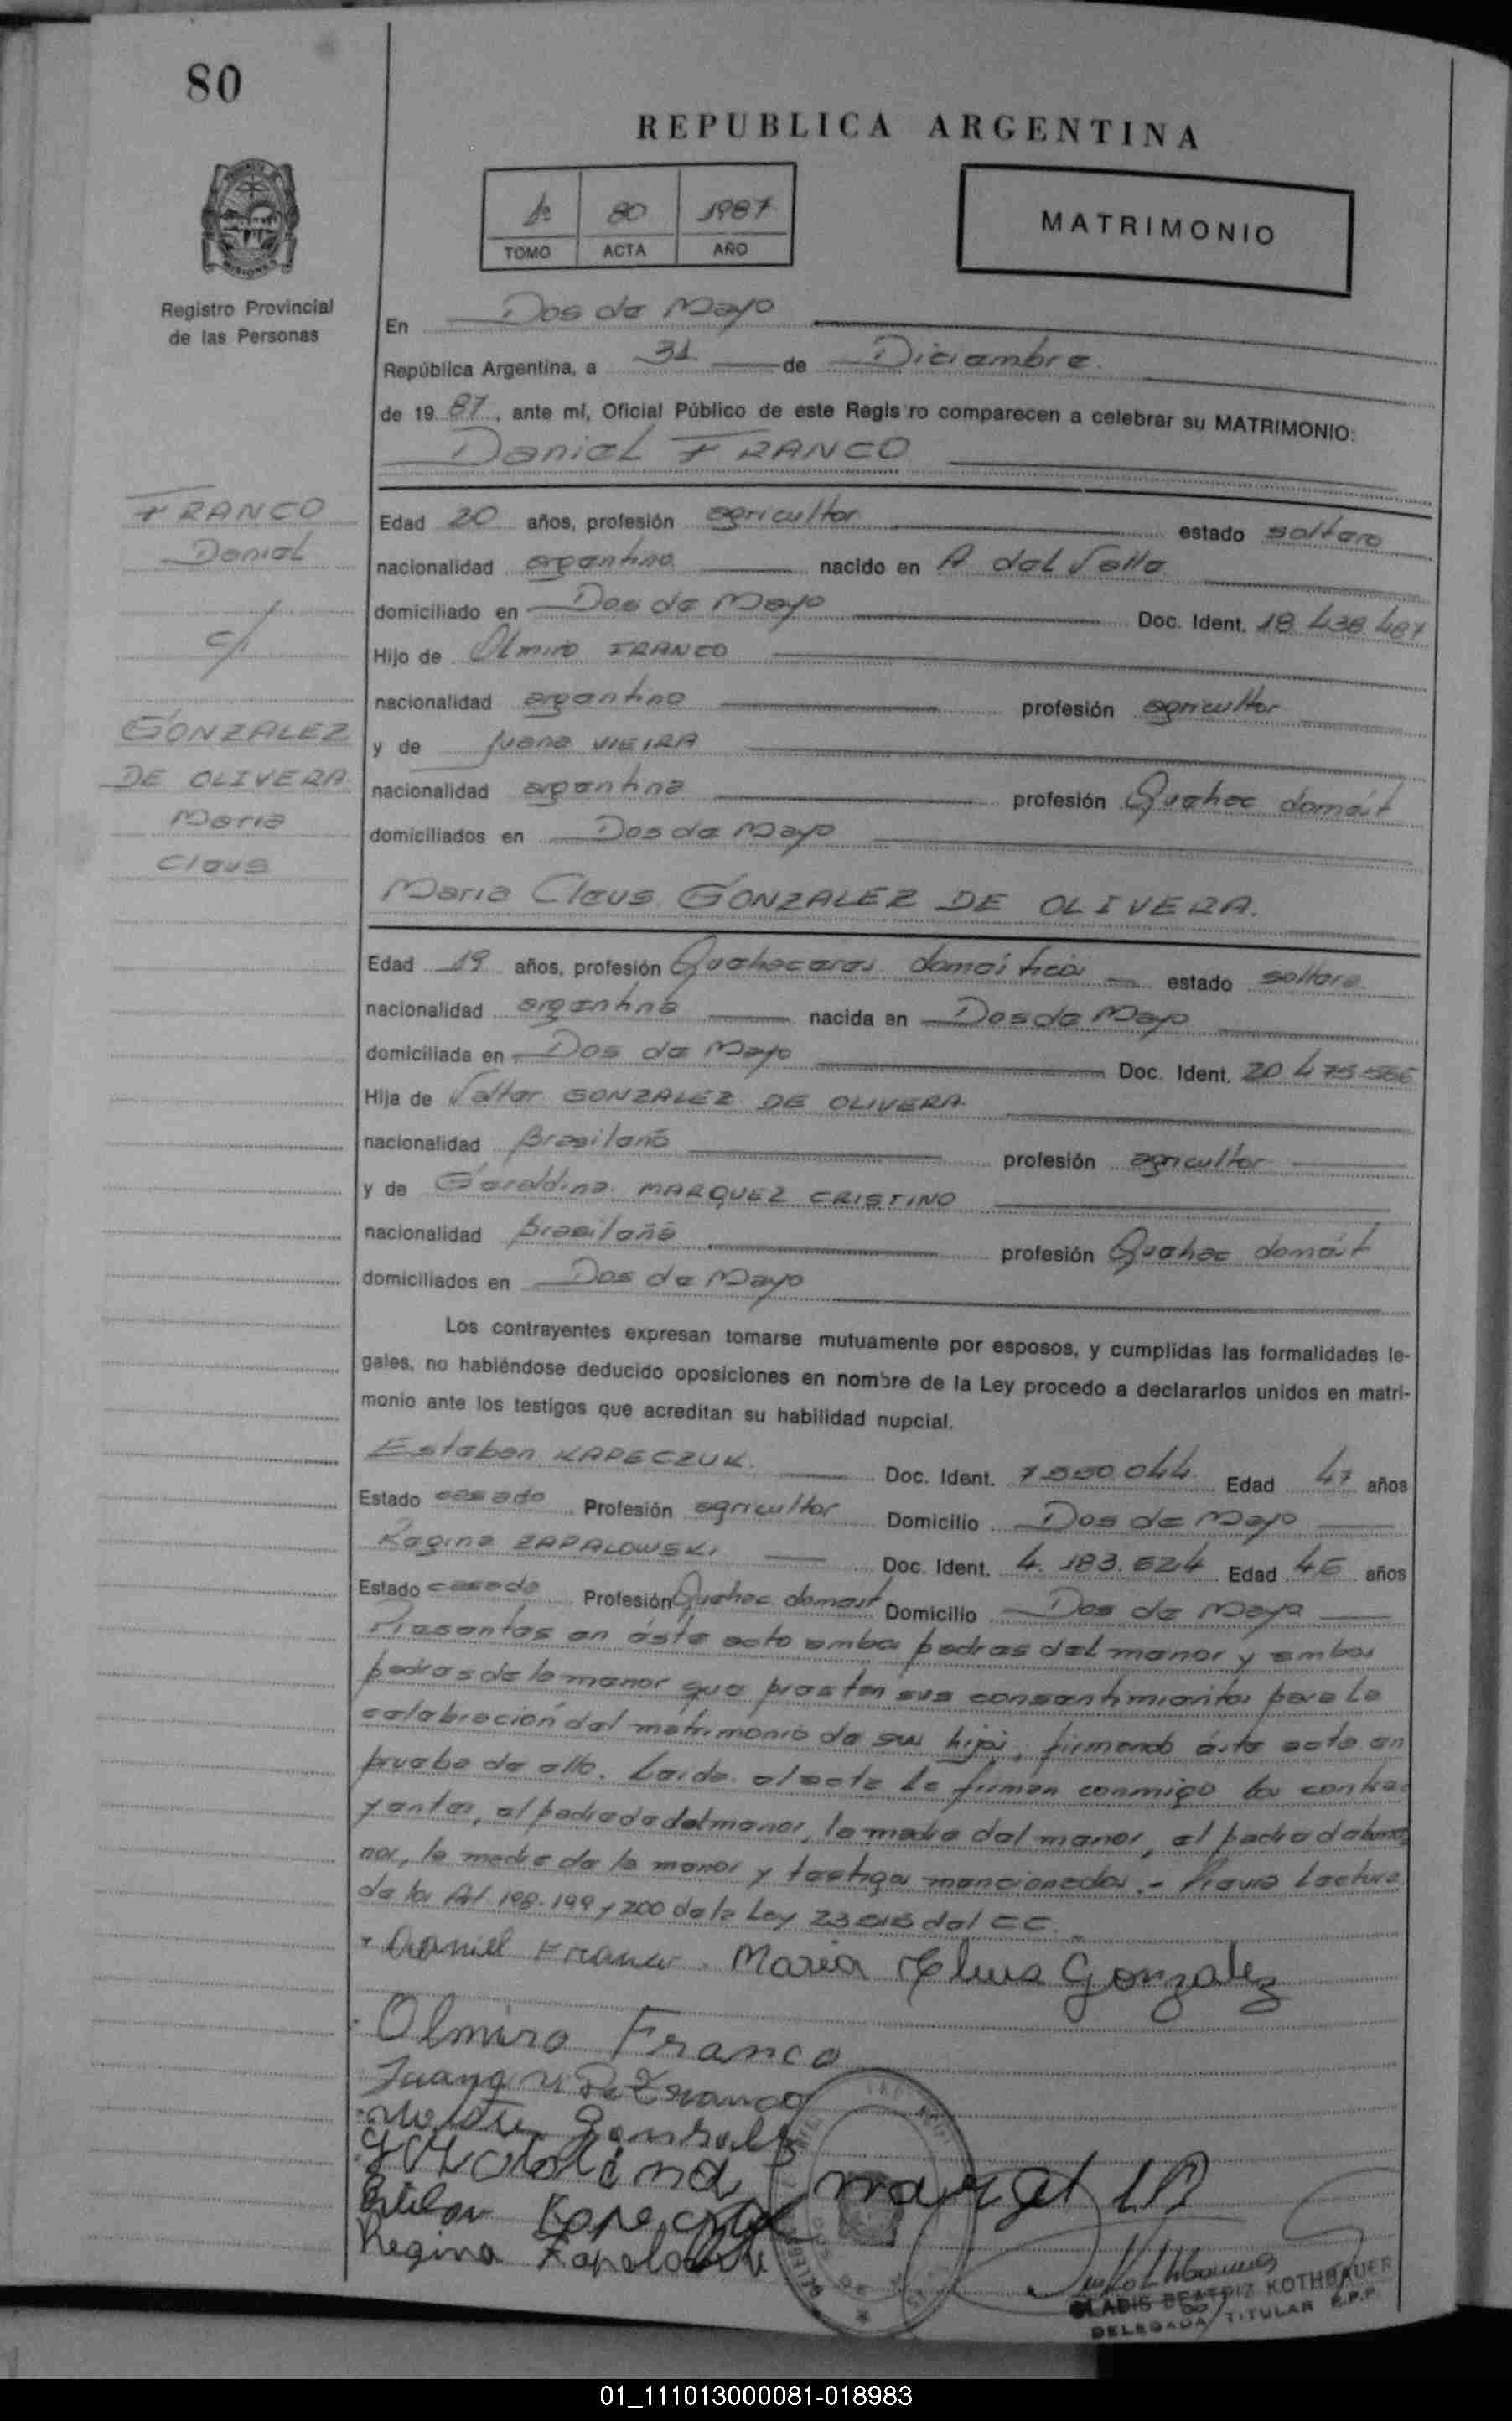 80
REPUBLICA ARGENTINA
80 1987
TOMO ACTA AÑO
MATRIMONIO
MISIONES
Registro Provincial
de las Personas
En Dos de Mayo
República Argentina, a 31 de Diciembre
de 1987, ante mí, Oficial Público de este Regis ro comparecen a celebrar su MATRIMONIO:
Daniel FRANCO
FRANCO
Daniel
c/
GONZALEZ
DE OLIVERA
Maria
Claus
Edad 20 años, profesión agricultor estado soltero
nacionalidad argentino nacido en A del Valle
domiciliado en Dos de Mayo Doc. Ident. 18.438.487
Hijo de Olmiro FRANCO
nacionalidad argentino profesión agricultor
y de Juana VIEIRA
nacionalidad argentina profesión Quehac domést
domiciliados en Dos de Mayo
Maria Claus GONZALEZ DE OLIVERA.
Edad 19 años, profesión Quehaceres domésticos estado soltera
nacionalidad argentina nacida en Dos de Mayo
domiciliada en Dos de Mayo Doc. Ident. 20.475.566
Hija de Valter GONZALEZ DE OLIVERA
nacionalidad Brasileño profesión agricultor
y de Geraldina MARQUEZ CRISTINO
nacionalidad Brasileña profesión Quehac domést
domiciliados en Dos de Mayo
Los contrayentes expresan tomarse mutuamente por esposos, y cumplidas las formalidades le-
gales, no habiéndose deducido oposiciones en nombre de la Ley procedo a declararlos unidos en matri-
monio ante los testigos que acreditan su habilidad nupcial.
Esteban KAPECZUK. Doc. Ident. 7.550.044 Edad 47 años
Estado casado Profesión agricultor Domicilio Dos de Mayo
Regina ZAPALOWSKI Doc. Ident. 4.183.524 Edad 46 años
Estado casada Profesión Quehac domést Domicilio Dos de Mayo
Presentes en éste acto ambos padres del menor y ambos
padres de la menor que prestan sus consentimientos para la
celebración del matrimonio de sus hijos, firmando ésta acta en
prueba de ello. Leida el acta la firman conmigo los contra
yentes, el padre de del menor, la madre del menor, el padre de la me
nor, la madre de la menor y testigos mencionados.- Previa Lectura
de los Art. 198-199 y 200 de la Ley 23515 del CC.
Daniel Franco. Maria Claus Gonzalez
Olmiro Franco
Juana V. De Franco
Gonsalez
Esteban Kapeczuk
Regina
GLADIS BEATRIZ KOTHBAUER
DELEGADA TITULAR R.P.P.
01_111013000081-018983